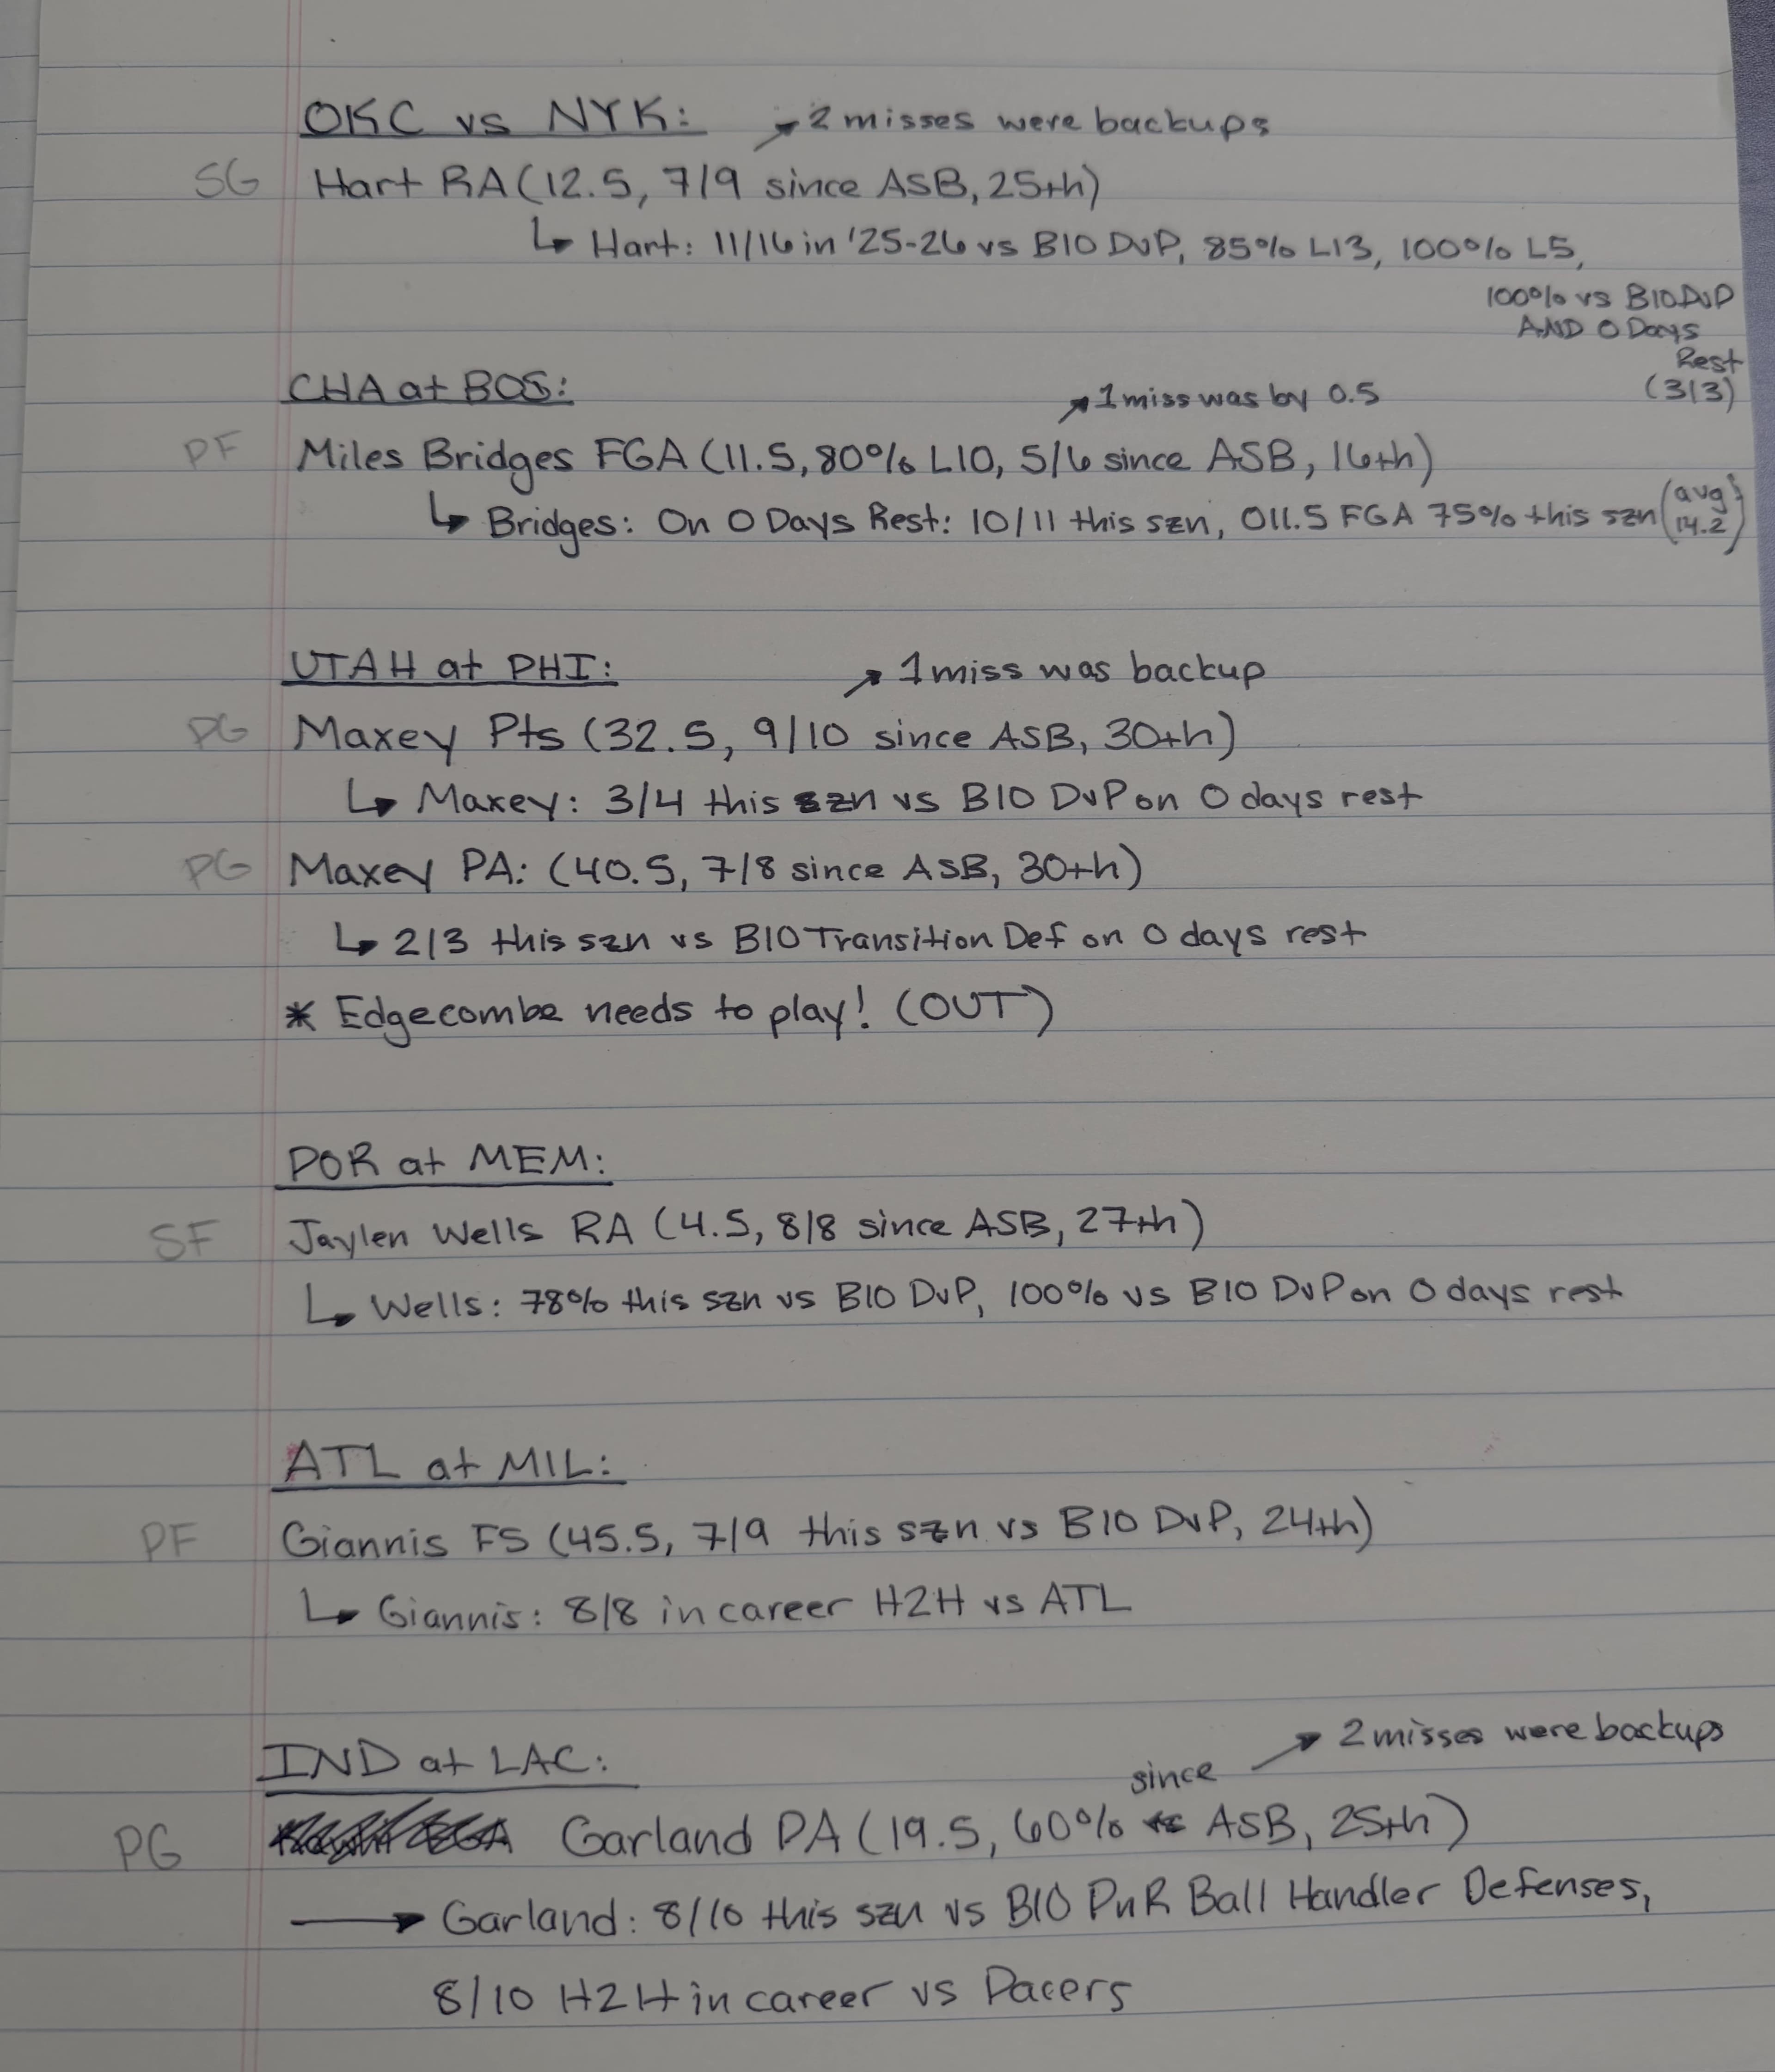 OKC vs NYK: → 2 misses were backups
SG Hart RA (12.5, 7/9 since ASB, 25th)
↳ Hart: 11/16 in '25-26 vs B10 DvP, 85% L13, 100% L5,
100% vs B10 DvP
AND 0 Days
Rest
(3/3)
CHA at BOS: → 1 miss was by 0.5
PF Miles Bridges FGA (11.5, 80% L10, 5/6 since ASB, 16th)
↳ Bridges: On 0 Days Rest: 10/11 this szn, O11.5 FGA 75% this szn (avg 14.2)
UTAH at PHI: → 1 miss was backup
PG Maxey Pts (32.5, 9/10 since ASB, 30th)
↳ Maxey: 3/4 this szn vs B10 DvP on 0 days rest
PG Maxey PA: (40.5, 7/8 since ASB, 30th)
↳ 2/3 this szn vs B10 Transition Def on 0 days rest
* Edgecombe needs to play! (OUT)
POR at MEM:
SF Jaylen Wells RA (4.5, 8/8 since ASB, 27th)
↳ Wells: 78% this szn vs B10 DvP, 100% vs B10 DvP on 0 days rest
ATL at MIL:
PF Giannis FS (45.5, 7/9 this szn vs B10 DvP, 24th)
↳ Giannis: 8/8 in career H2H vs ATL
IND at LAC: → 2 misses were backups
PG Garland PA (19.5, 60% since ASB, 25th)
→ Garland: 8/10 this szn vs B10 PnR Ball Handler Defenses,
8/10 H2H in career vs Pacers